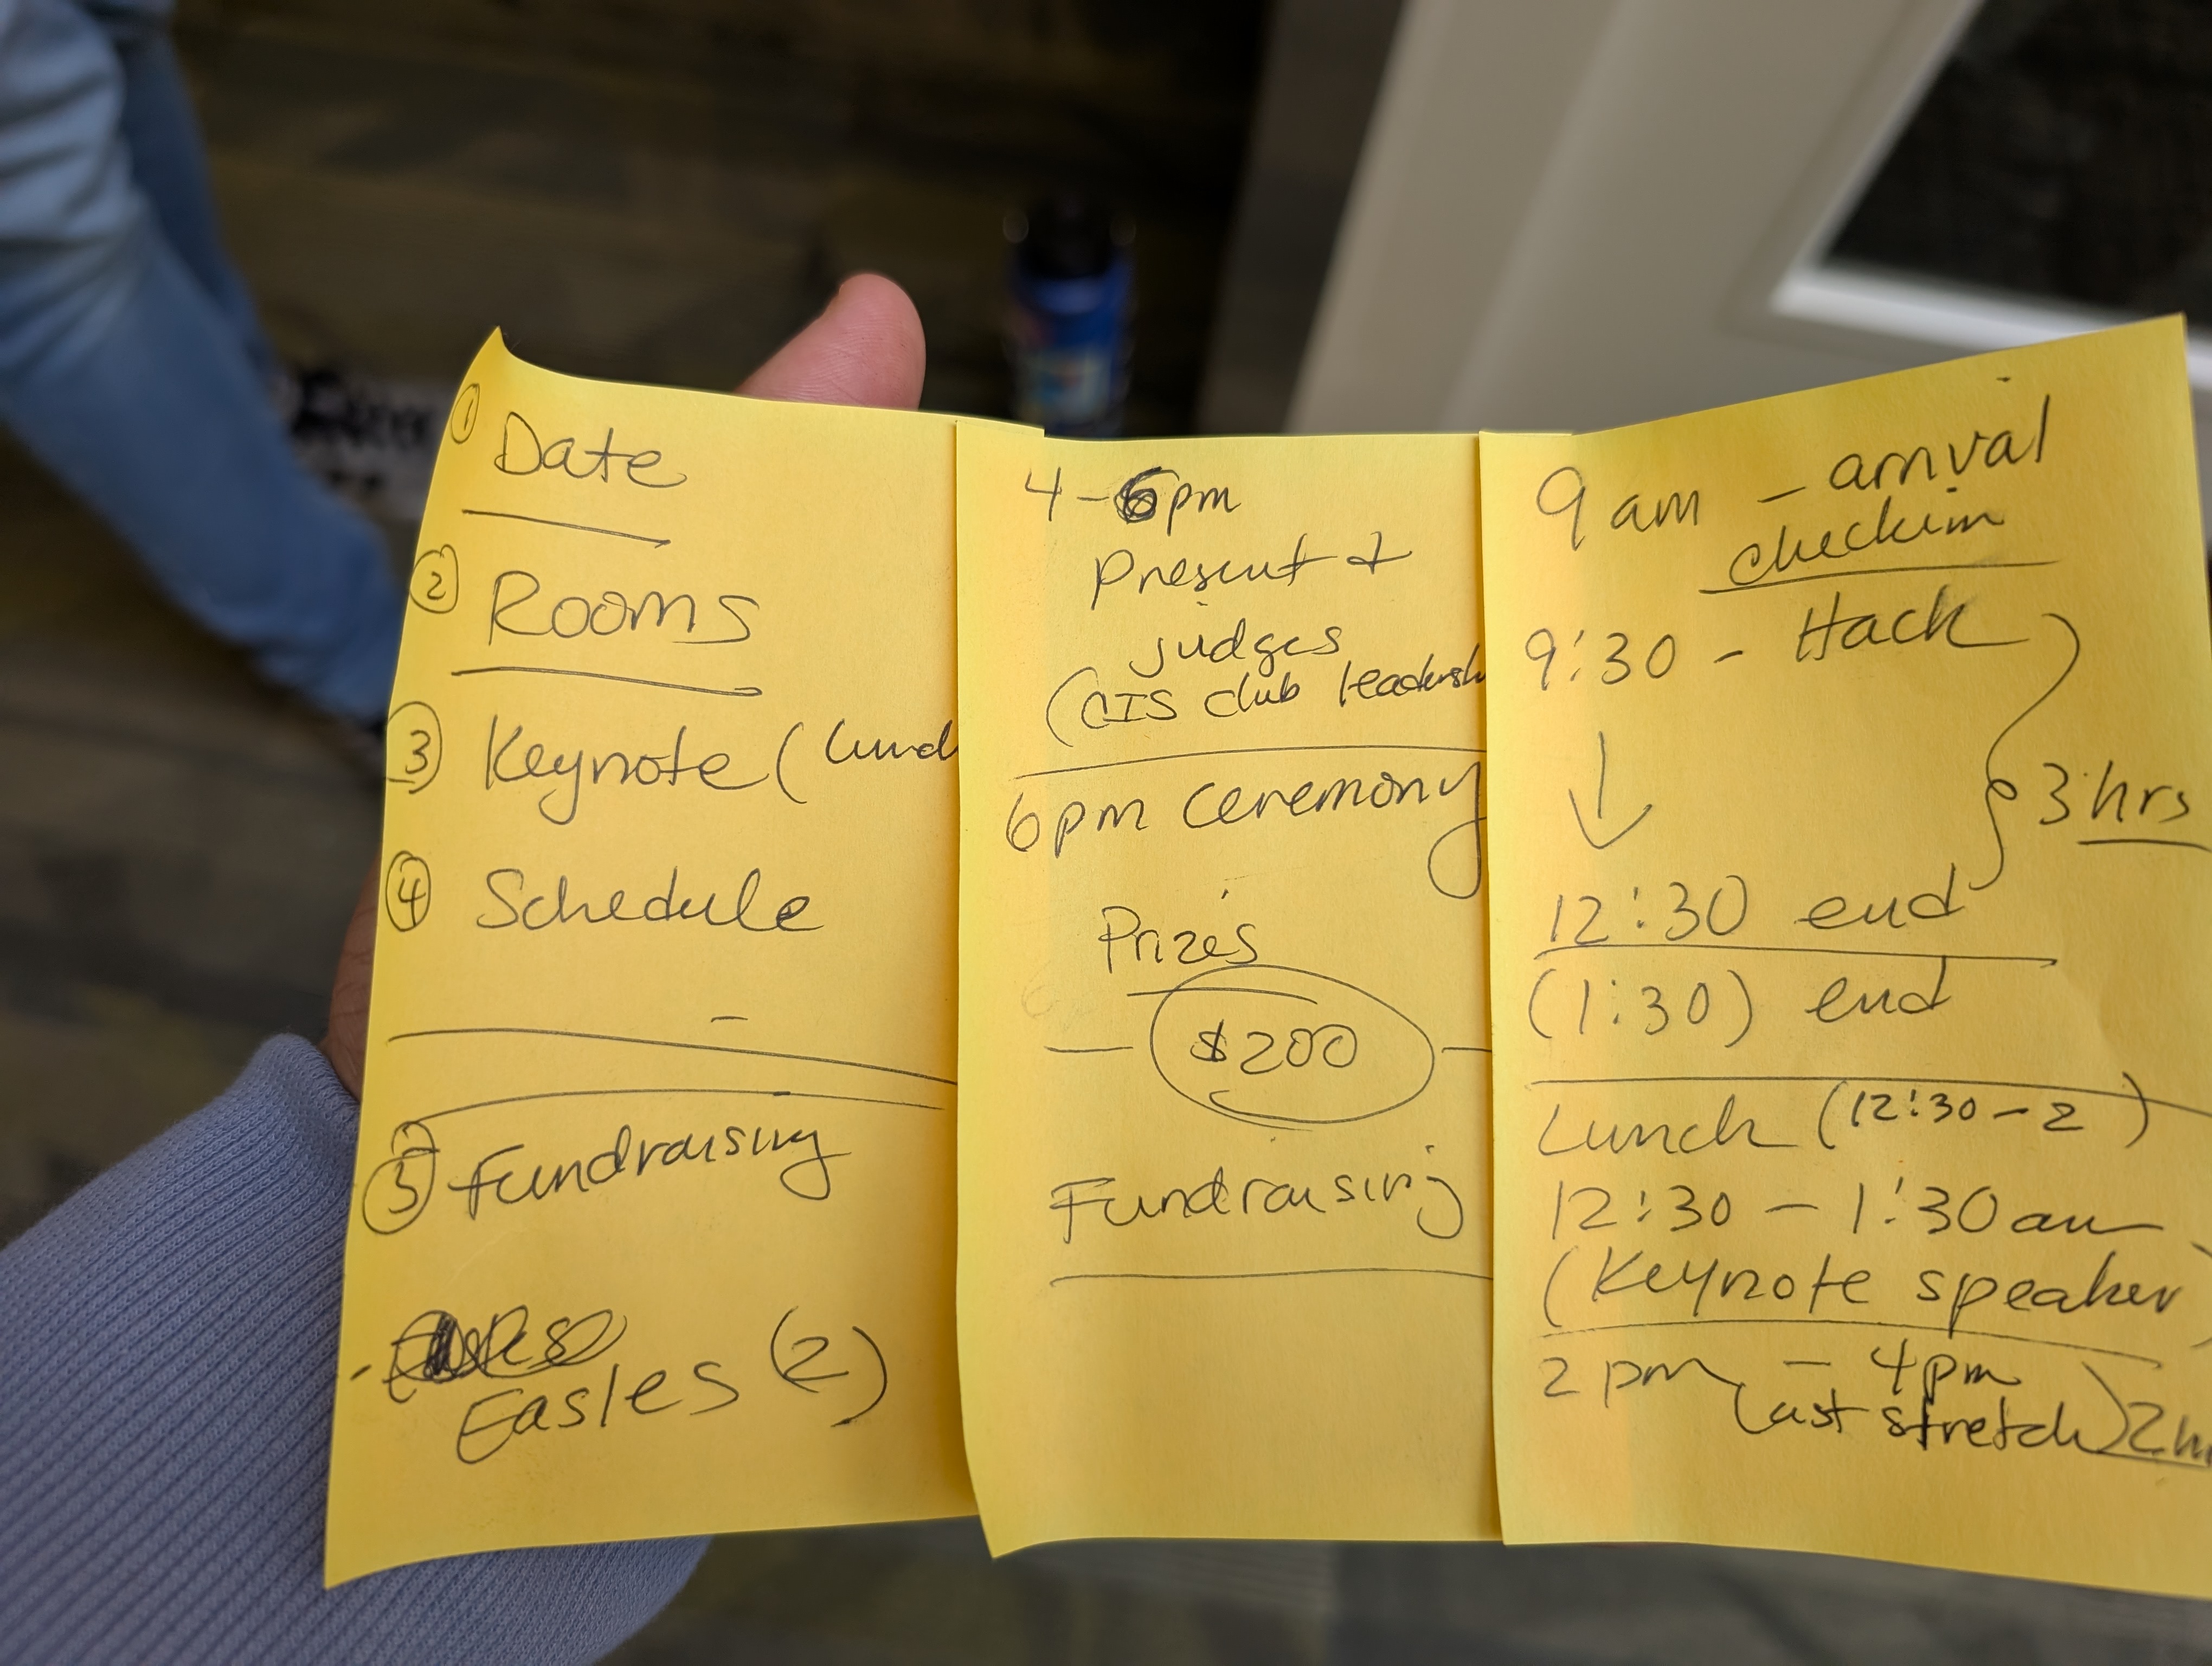 ① Date
② Rooms
③ Keynote (lunch
④ Schedule
⑤ Fundraising
Easles (2)
4-6pm
Present +
judges
(CIS club leadersh
6pm Ceremony
Prizes
$200
Fundraising
9am - arrival
checkin
9:30 - Hack
3 hrs
12:30 end
(1:30) end
Lunch (12:30-2)
12:30 - 1:30am
(Keynote speaker)
2pm - 4pm
last stretch) 2h